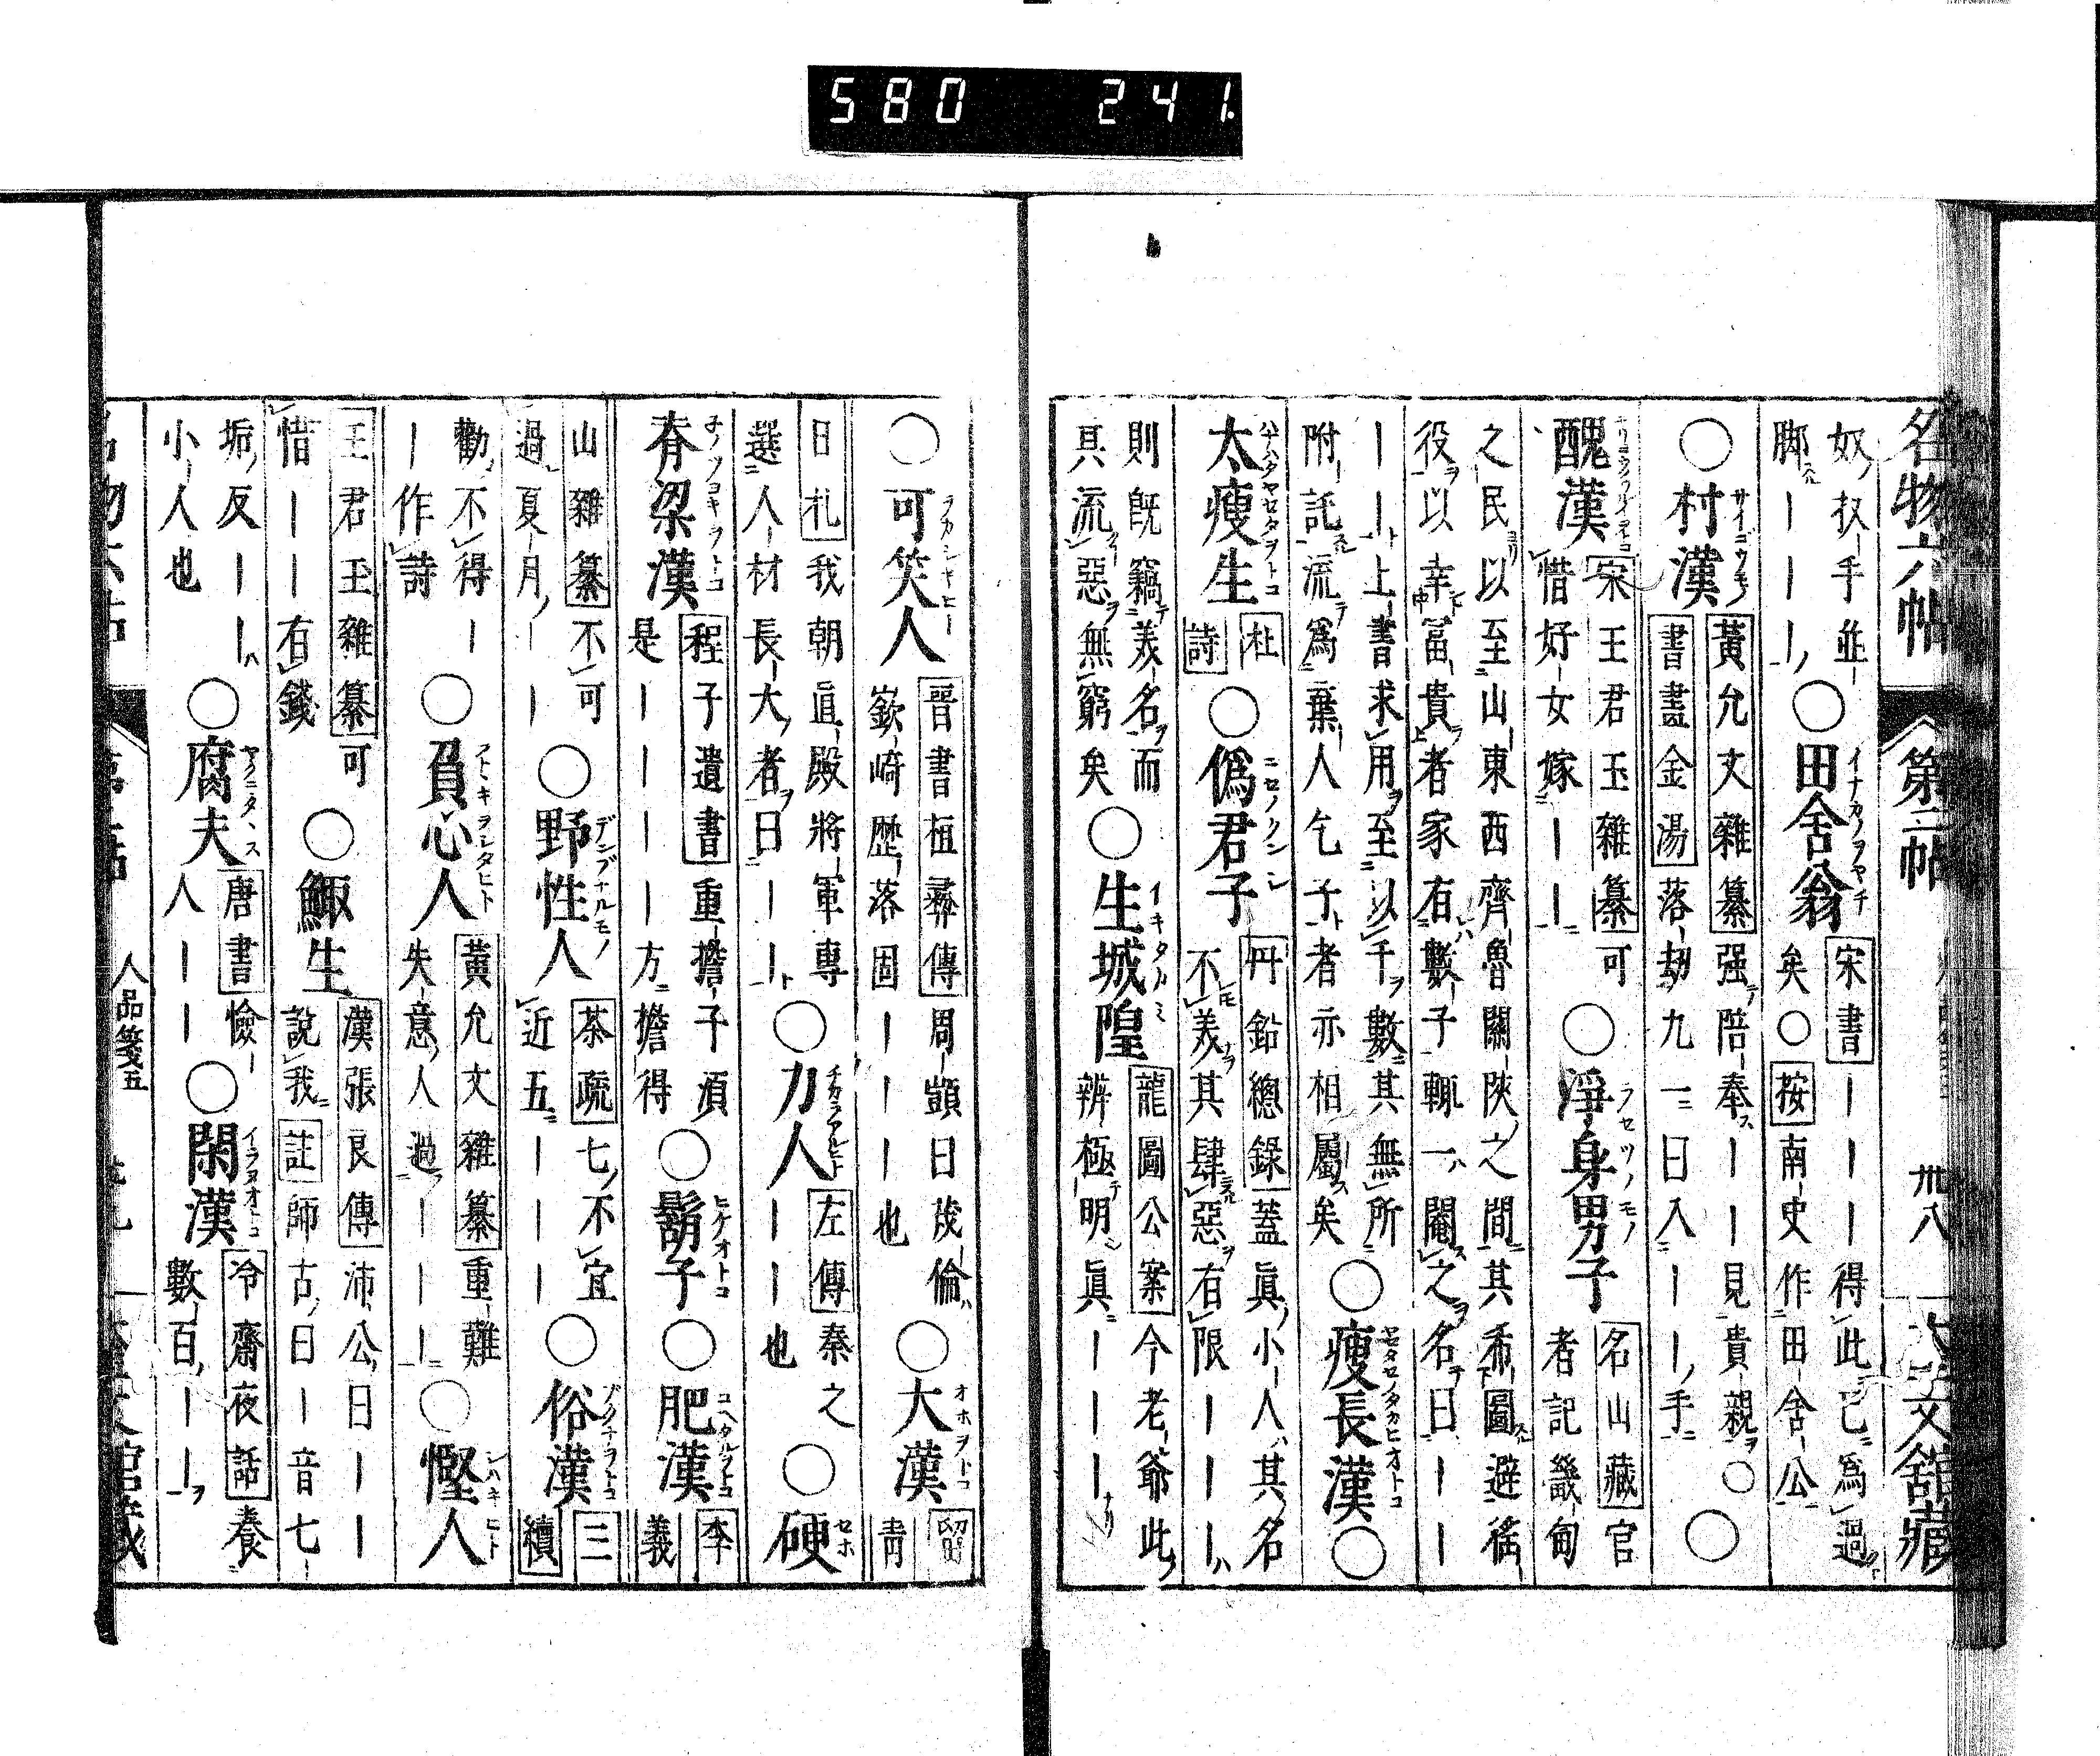 580 241.
名物六帖 第二帖 卅八
奴扠手並脚｜｜｜｜○田舍翁 宋書｜｜｜得此已為過矣○按南史作田舍公
○村漢 黃允文雜纂强陪奉｜｜見貴親○書畫金湯落劫九一日入｜｜手○
醜漢 宋王君玉雜纂可惜好女嫁｜｜○淨身男子 名山藏官者記畿甸
之民以至山東西齊魯關陝之間其希圖避徭役以幸冨貴者家有數子輒一閹之名曰｜｜
｜｜上書求用至以千數其無所附託流為棄人乞子者亦相屬矣○瘦長漢○
太瘦生 杜詩○偽君子 丹鉛總錄蓋眞小人其名不美其肆惡有限｜｜｜
則既竊美名而具流惡無窮矣○生城隍 龍圖公案今老爺此辨極明眞｜｜｜
○可笑人 晉書桓彝傳周顗曰茂倫嶔崎歷落固｜｜｜也○大漢 留青
日札我朝直殿將軍專選人材長大者曰｜｜○力人 左傳秦之｜｜也○硬
脊梁漢 程子遺書重擔子須是｜｜｜｜方擔得○鬍子○肥漢 李義
山雜纂不可過夏月｜｜○野性人 茶疏七不宜近五｜｜｜○俗漢 三續
勸不得｜｜作詩○負心人 黃允文雜纂重難失意人過｜｜｜○慳人
王君玉雜纂可惜｜｜有錢○鯫生 漢張良傳沛公曰｜｜說我註師古曰｜音七
垢反｜｜小人也○腐夫 唐書憸人｜｜○閑漢 冷齋夜話養數百｜｜
人品箋五